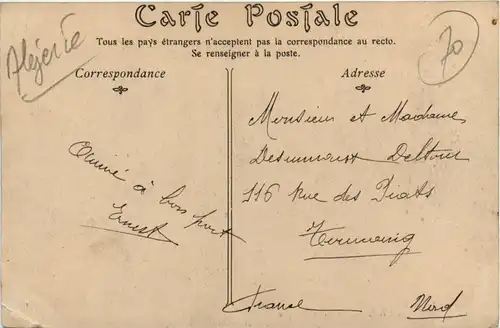 Carte Postale
Tous les pays étrangers n'acceptent pas la correspondance au recto.
Se renseigner à la poste.
Algérie
70
Correspondance
Arrivé à bon port
Ernest
Adresse
Monsieur et Madame
Deltour
116 Rue des Prats
France
Nord